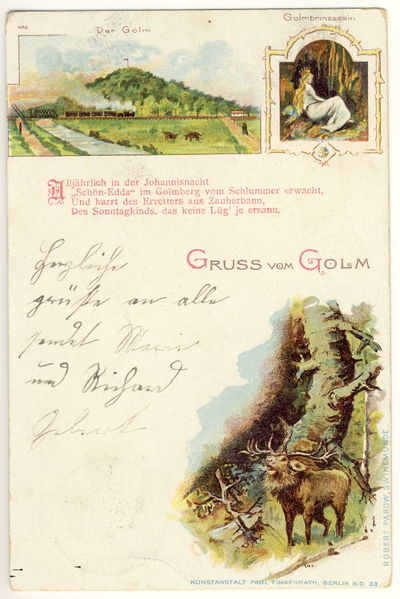 482
Der Golm
Golmprinzessin
Alljährlich in der Johannisnacht
„Schön-Edda“ im Golmberg vom Schlummer erwacht,
Und harrt des Erretters aus Zauberbann,
Des Sonntagkinds, das keine Lüg' je ersann.
GRUSS VOM GOLM
Herzliche
grüße an alle
sendet Marie
und Richard
ROBERT PAROW, SWINEMÜNDE
KUNSTANSTALT PAUL FINKENRATH, BERLIN S.O 33